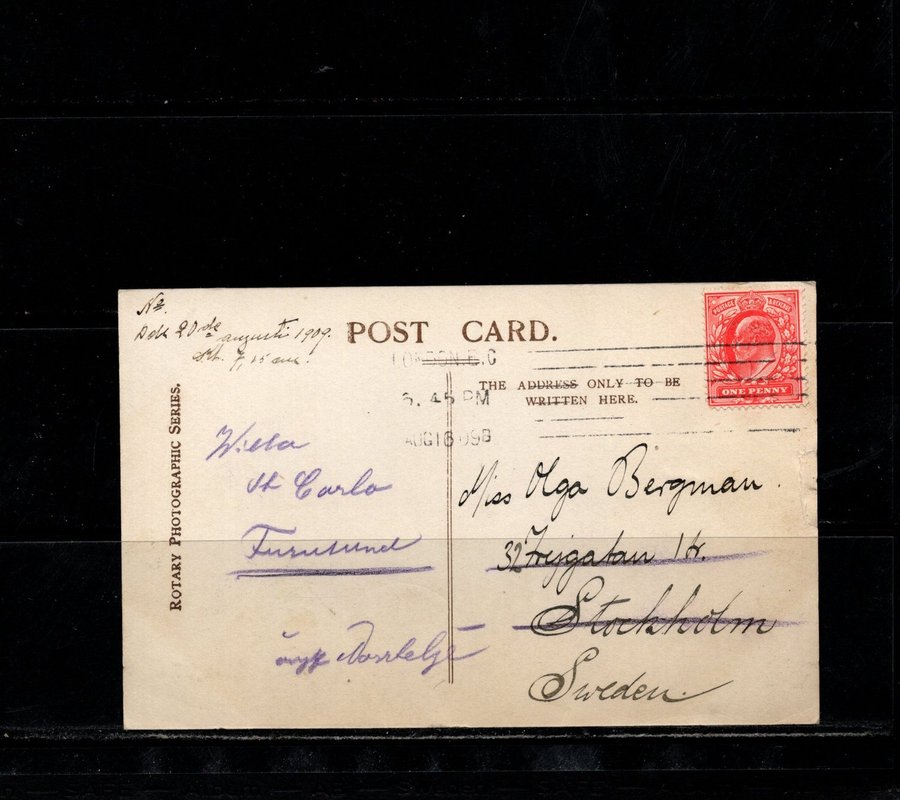 No.
20de augusti 1909.
POST CARD.
LONDON E.C
6.45 PM
AUG 16 09B
THE ADDRESS ONLY TO BE
WRITTEN HERE.
POSTAGE REVENUE
ONE PENNY
ROTARY PHOTOGRAPHIC SERIES.
Villa
St Carlo
Furusund
Norrtelje
Miss Olga Bergman.
32 Frejgatan 1 tr.
Stockholm
Sweden.